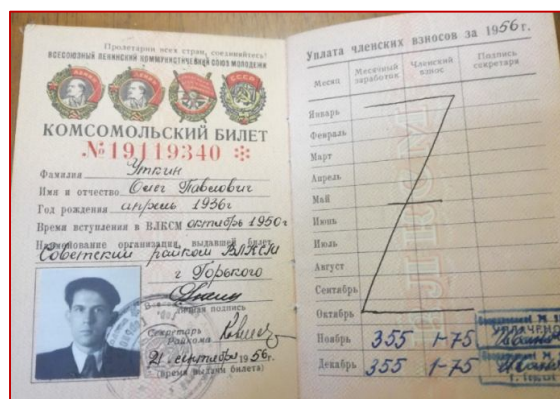 Пролетарии всех стран, соединяйтесь!
ВСЕСОЮЗНЫЙ ЛЕНИНСКИЙ КОММУНИСТИЧЕСКИЙ СОЮЗ МОЛОДЕЖИ
КОМСОМОЛЬСКИЙ БИЛЕТ
№19119340
Фамилия Уткин
Имя и отчество Олег Павлович
Год рождения апрель 1936г
Время вступления в ВЛКСМ октябрь 1950г
Наименование организации, выдавшей билет
Советский райком ВЛКСМ
г Горького
Личная подпись
Секретарь
Райкома
21 сентября 1956г.
(время выдачи билета)
Уплата членских взносов за 1956г.
Месяц Месячный заработок Членский взнос Подпись секретаря
Январь
Февраль
Март
Апрель
Май
Июнь
Июль
Август
Сентябрь
Октябрь
Ноябрь 355 1-75
Декабрь 355 1-75